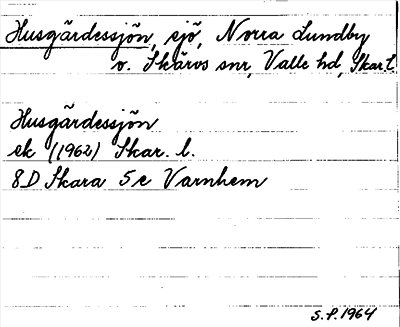 Husgärdessjön, sjö, Norra Lundby
o. Skärvs snr, Valle hd, Skar. l.
Husgärdessjön
ek (1962) Skar. l.
8D Skara 5e Varnhem
S.F. 1964